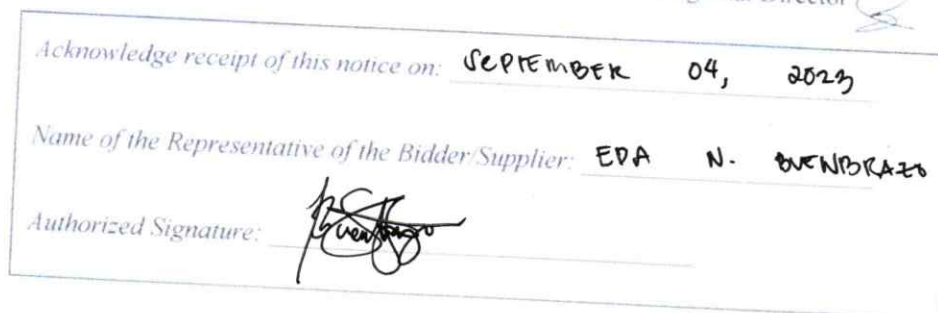 Director
Acknowledge receipt of this notice on: SEPTEMBER 04, 2023
Name of the Representative of the Bidder/Supplier: EDA N. BUENBRAZO
Authorized Signature: